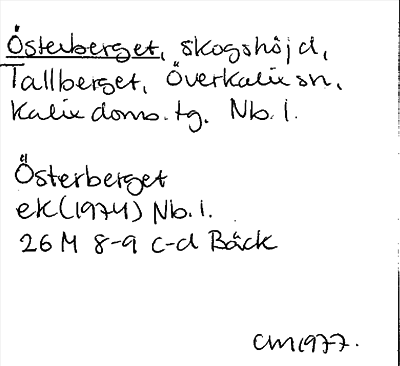 Österberget, skogshöjd,
Tallberget, Överkalix sn,
Kalix doms.tg. Nb.l.
Österberget
ek(1974) Nb.l.
26 M 8-9 c-d Bäck
CM1977.